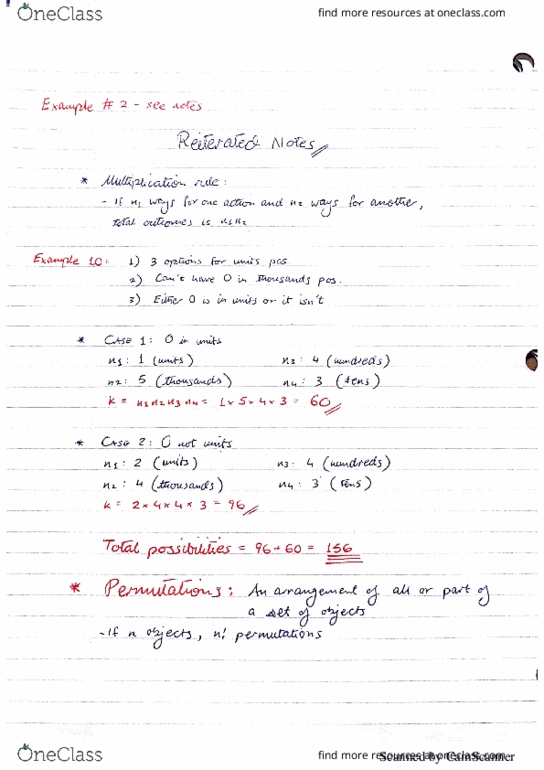 OneClass
find more resources at oneclass.com
Example # 2 - see notes
Reiterated Notes
* Multiplication rule:
- If n1 ways for one action and n2 ways for another,
total outcomes is n1n2
Example 10: 1) 3 options for units pos
2) Can't have 0 in thousands pos.
3) Either 0 is in units or it isn't
* CASE 1: 0 in units
n1: 1 (units) n3: 4 (hundreds)
n2: 5 (thousands) n4: 3 (tens)
k = n1n2n3n4 = 1 x 5 x 4 x 3 = 60
* CASE 2: 0 not units
n1: 2 (units) n3: 4 (hundreds)
n2: 4 (thousands) n4: 3 (tens)
k = 2 x 4 x 4 x 3 = 96
Total possibilities = 96 + 60 = 156
* Permutations: An arrangement of all or part of
a set of objects
- If n objects, n! permutations
OneClass
find more resources at oneclass.com
Scanned by CamScanner